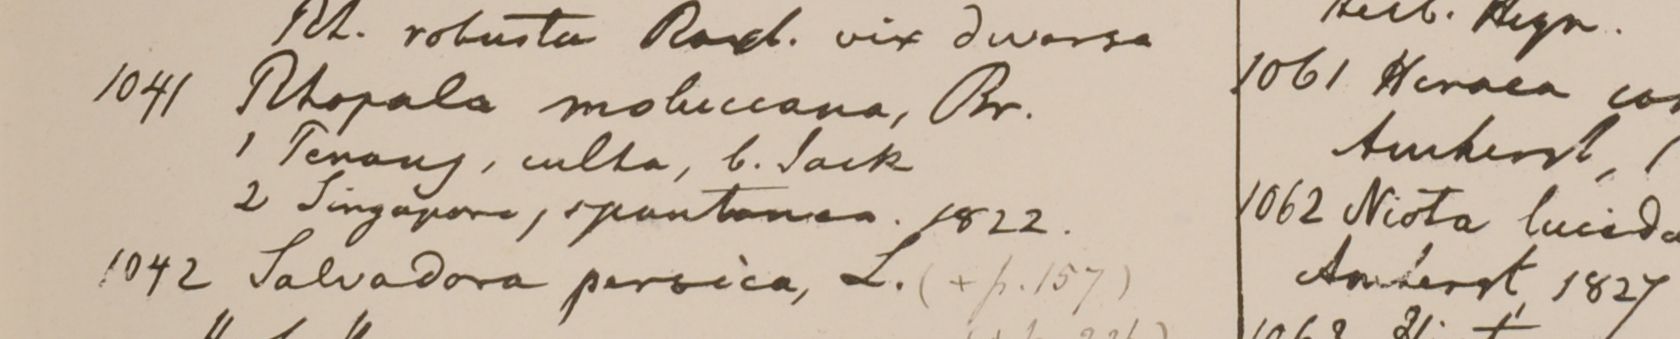 Rh. robusta Roxb. vix diversa
1041 Rhopala moluccana, Br.
1 Penang, culta, b. Jack
2 Singapore, spontanea. 1822.
1042 Salvadora persica, L. (+ p. 157)
Herb. Heyn.
1061 Hiraea
Amherst,
1062 Niota lucida
Amherst, 1827
1063